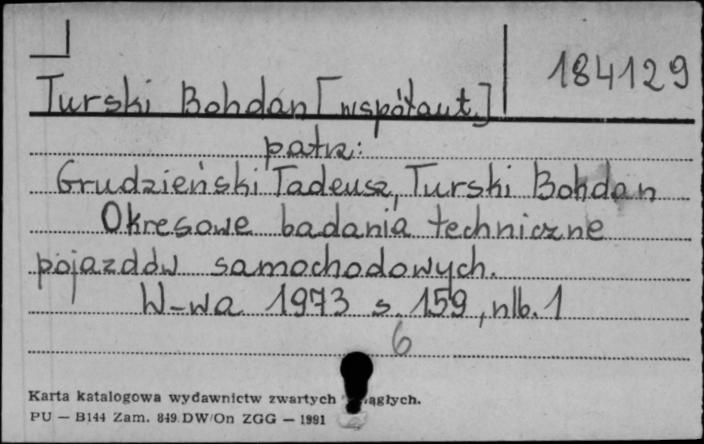 184129
Turski Bohdan [współaut.]
patrz:
Grudzieński Tadeusz, Turski Bohdan
Okresowe badania techniczne
pojazdów samochodowych.
W-wa 1973 s. 159, nlb. 1
6
Karta katalogowa wydawnictw zwartych ągłych.
PU — B144 Zam. 849 DW/On ZGG — 1991